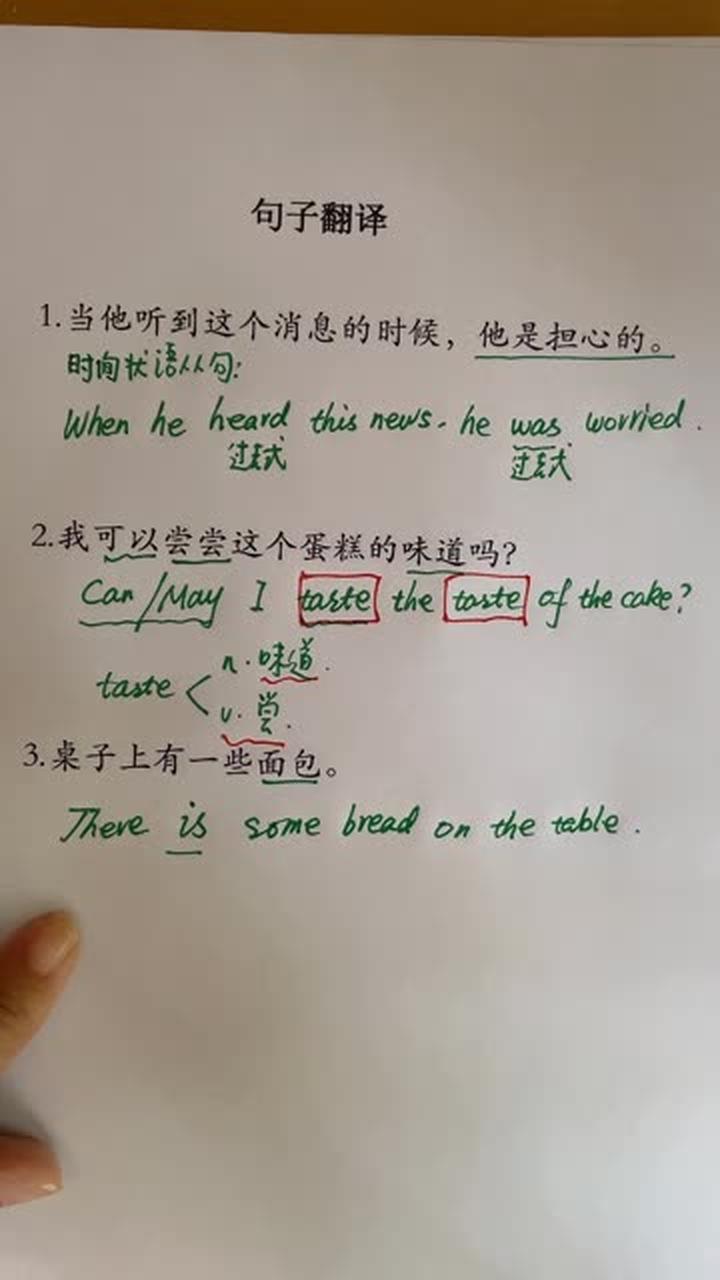 句子翻译
1.当他听到这个消息的时候，他是担心的。
时间状语从句:
When he heard this news, he was worried.
过去式 过去式
2.我可以尝尝这个蛋糕的味道吗?
Can/May I taste the taste of the cake?
n.味道.
taste <
v.尝.
3.桌子上有一些面包。
There is some bread on the table.